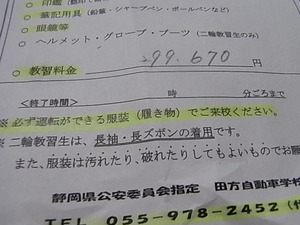 ○ 印鑑
○ 筆記用具（鉛筆・シャープペン・ボールペンなど）
○ 眼鏡等
○ ヘルメット・グローブ・ブーツ（二輪教習生のみ）
○ 教習料金 299.670 円
時 分ごろまで
＜終了時間＞
※ 必ず運転ができる服装（履き物）でご来校ください。
※ 二輪教習生は、長袖・長ズボンの着用です。
また、服装は汚れたり、破れたりしてもよいものでお願
静岡県公安委員会指定 田方自動車学校
TEL 055-978-2452（代